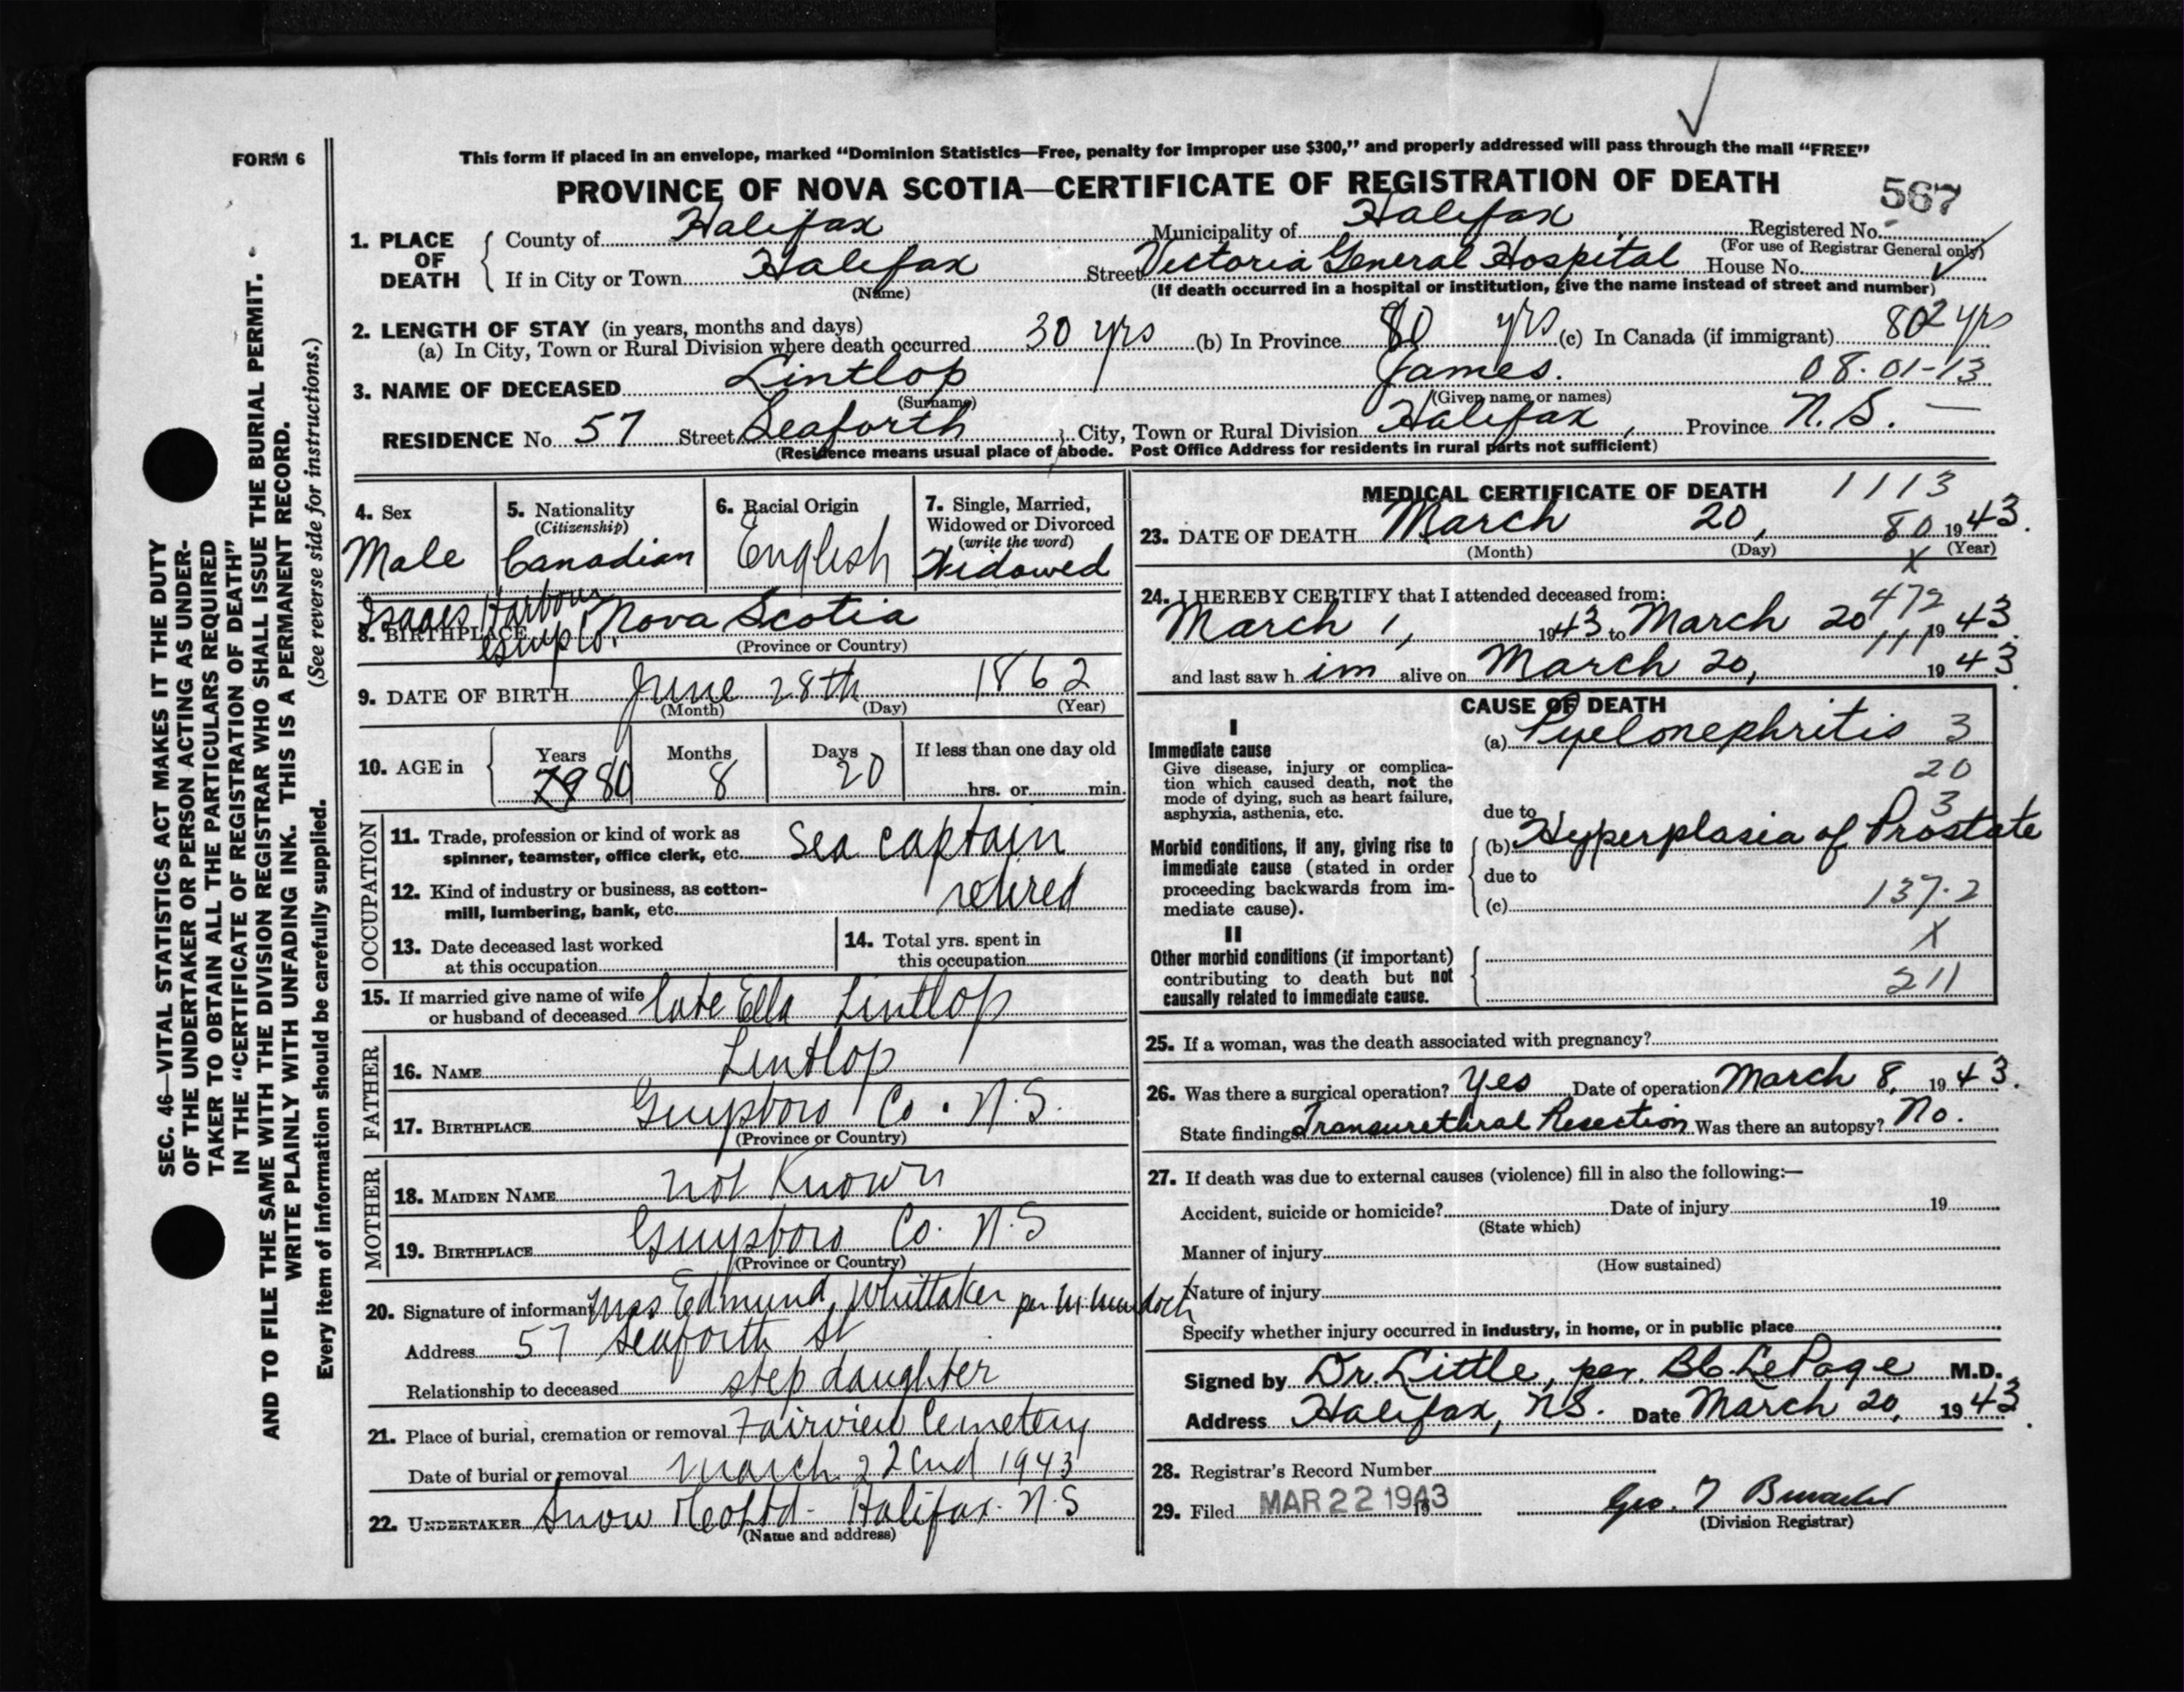 FORM 6
This form if placed in an envelope, marked “Dominion Statistics—Free, penalty for improper use $300,” and properly addressed will pass through the mail “FREE”
PROVINCE OF NOVA SCOTIA—CERTIFICATE OF REGISTRATION OF DEATH
567
1. PLACE OF DEATH County of Halifax Municipality of Halifax Registered No.
(For use of Registrar General only)
If in City or Town Halifax Street Victoria General Hospital House No.
(Name) (If death occurred in a hospital or institution, give the name instead of street and number)
2. LENGTH OF STAY (in years, months and days)
(a) In City, Town or Rural Division where death occurred 30 yrs (b) In Province 80 yrs (c) In Canada (if immigrant) 80 yrs
3. NAME OF DECEASED Lintlop James. 08-01-13
(Surname) (Given name or names)
RESIDENCE No. 57 Street Seaforth City, Town or Rural Division Halifax, Province N.S.
(Residence means usual place of abode. Post Office Address for residents in rural parts not sufficient)
4. Sex
Male
5. Nationality
(Citizenship)
Canadian
6. Racial Origin
English
7. Single, Married,
Widowed or Divorced
(write the word)
Widowed
Isaacs Harbour
8. BIRTHPLACE Guys Co. Nova Scotia
(Province or Country)
9. DATE OF BIRTH June 28th 1862
(Month) (Day) (Year)
10. AGE in Years Months Days If less than one day old
79 80 8 20 hrs. or min.
OCCUPATION
11. Trade, profession or kind of work as
spinner, teamster, office clerk, etc. Sea captain
12. Kind of industry or business, as cotton-
mill, lumbering, bank, etc. retired
13. Date deceased last worked
at this occupation
14. Total yrs. spent in
this occupation
15. If married give name of wife
or husband of deceased late Ella Lintlop
FATHER
16. NAME Lintlop
17. BIRTHPLACE Guysboro Co. N.S.
(Province or Country)
MOTHER
18. MAIDEN NAME not Known
19. BIRTHPLACE Guysboro Co. N.S
(Province or Country)
20. Signature of informant Mrs Edmund Whittaker per M. Murdoch
Address 57 Seaforth St
Relationship to deceased step daughter
21. Place of burial, cremation or removal Fairview Cemetery
Date of burial or removal March 22nd 1943
22. UNDERTAKER Snow & Co Ltd - Halifax. N.S
(Name and address)
MEDICAL CERTIFICATE OF DEATH 1113
23. DATE OF DEATH March 20, 80 1943.
(Month) (Day) (Year)
x
24. I HEREBY CERTIFY that I attended deceased from:
472
March 1, 1943 to March 20 1943.
111
and last saw h im alive on March 20, 1943.
CAUSE OF DEATH
I
Immediate cause
Give disease, injury or complica-
tion which caused death, not the
mode of dying, such as heart failure,
asphyxia, asthenia, etc.
(a) Pyelonephritis 3
20
3
due to
Morbid conditions, if any, giving rise to
immediate cause (stated in order
proceeding backwards from im-
mediate cause).
(b) Hyperplasia of Prostate
due to
(c) 137-2
II
Other morbid conditions (if important)
contributing to death but not
causally related to immediate cause.
X
211
25. If a woman, was the death associated with pregnancy?
26. Was there a surgical operation? Yes Date of operation March 8, 1943.
State findings Transurethral Resection Was there an autopsy? No.
27. If death was due to external causes (violence) fill in also the following:—
Accident, suicide or homicide? Date of injury 19
(State which)
Manner of injury
(How sustained)
Nature of injury
Specify whether injury occurred in industry, in home, or in public place
Signed by Dr. Little, per. LePage M.D.
Address Halifax, N.S. Date March 20, 1943.
28. Registrar's Record Number
29. Filed MAR 22 1943 19 Geo. 
(Division Registrar)
SEC. 46—VITAL STATISTICS ACT MAKES IT THE DUTY
OF THE UNDERTAKER OR PERSON ACTING AS UNDER-
TAKER TO OBTAIN ALL THE PARTICULARS REQUIRED
IN THE “CERTIFICATE OF REGISTRATION OF DEATH”
AND TO FILE THE SAME WITH THE DIVISION REGISTRAR WHO SHALL ISSUE THE BURIAL PERMIT.
WRITE PLAINLY WITH UNFADING INK. THIS IS A PERMANENT RECORD.
Every item of information should be carefully supplied. (See reverse side for instructions.)